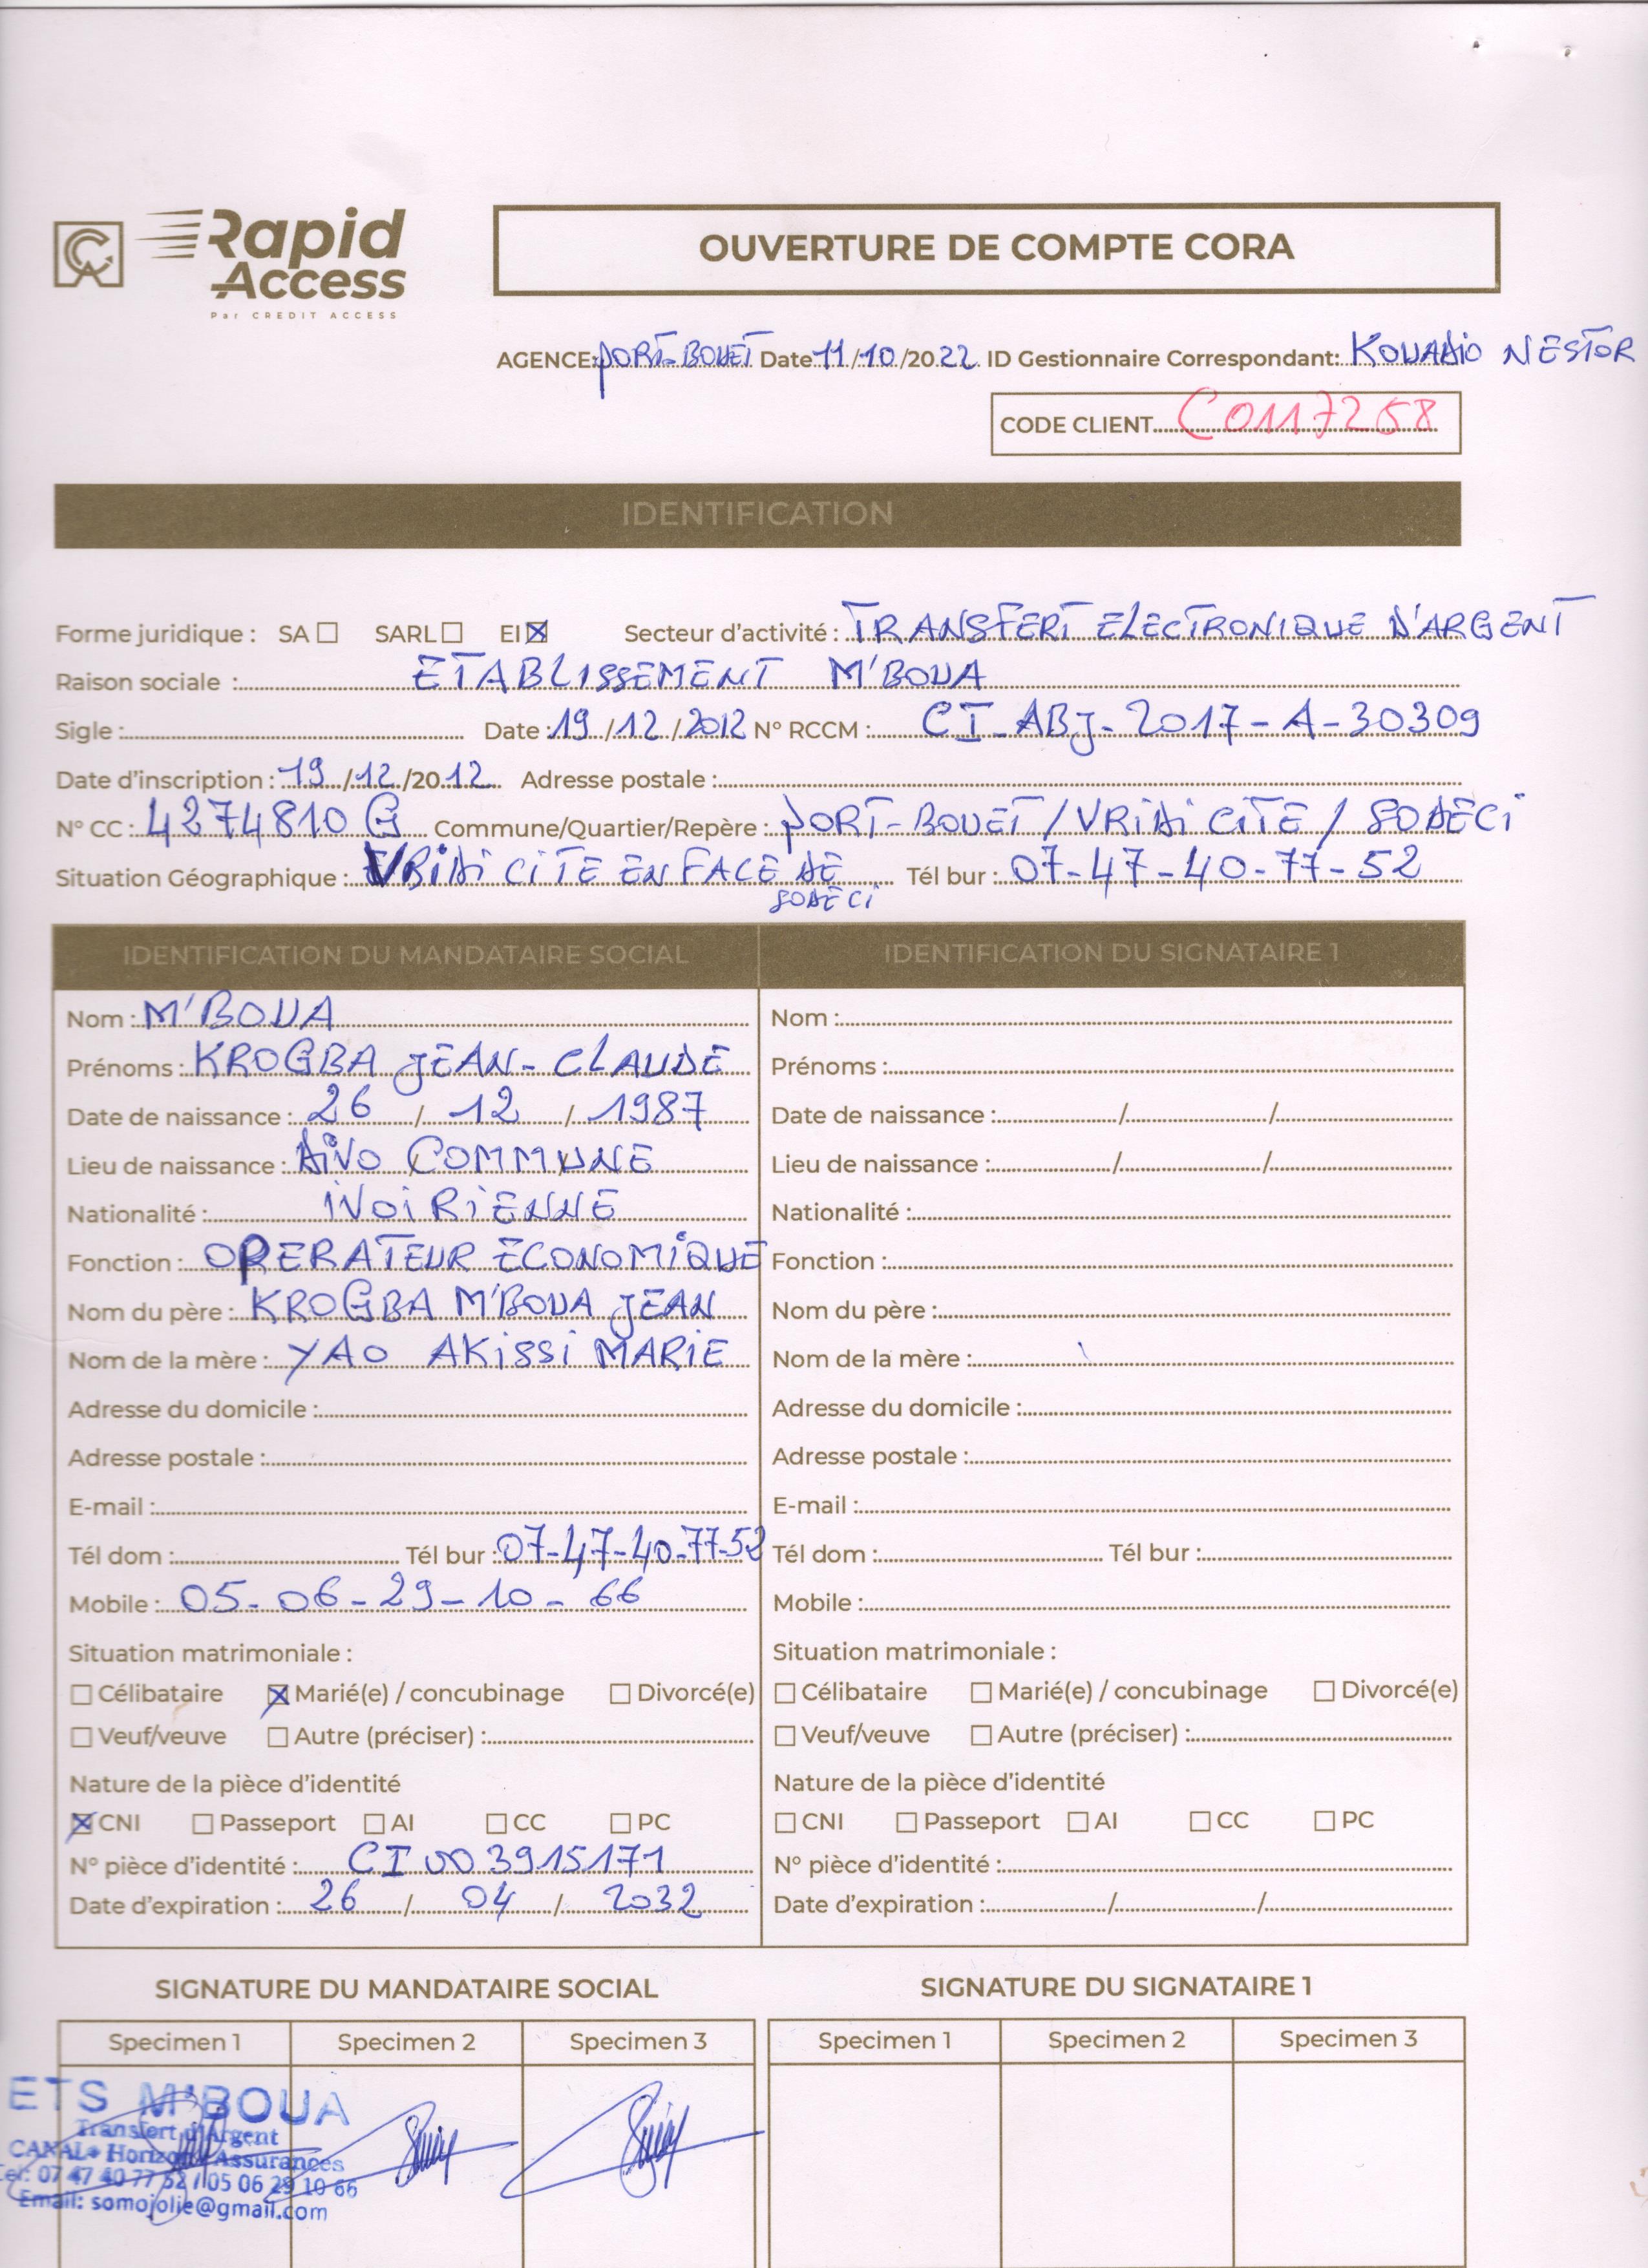 Rapid
Access
Par CREDIT ACCESS
OUVERTURE DE COMPTE CORA
AGENCE: PORT-BOUET Date 11/10/2022 ID Gestionnaire Correspondant: KOUADIO NESTOR
CODE CLIENT C0117258
IDENTIFICATION
Forme juridique : SA ☐ SARL ☐ EI ☒ Secteur d'activité : TRANSFERT ELECTRONIQUE D'ARGENT
Raison sociale : ETABLISSEMENT M'BOUA
Sigle : Date : 19/12/2012 N° RCCM : CI-ABJ-2017-A-30309
Date d'inscription : 19/12/2012 Adresse postale :
N° CC : 4274810 G Commune/Quartier/Repère : PORT-BOUET/VRIDI CITE/SODECI
Situation Géographique : VRIDI CITE EN FACE DE SODECI Tél bur : 07-47-40-77-52
IDENTIFICATION DU MANDATAIRE SOCIAL
Nom : M'BOUA
Prénoms : KROGBA JEAN-CLAUDE
Date de naissance : 26/12/1987
Lieu de naissance : DIVO COMMUNE
Nationalité : IVOIRIENNE
Fonction : OPERATEUR ECONOMIQUE
Nom du père : KROGBA M'BOUA JEAN
Nom de la mère : YAO AKISSI MARIE
Adresse du domicile :
Adresse postale :
E-mail :
Tél dom : Tél bur : 07-47-40-77-52
Mobile : 05-06-29-10-66
Situation matrimoniale :
☐ Célibataire ☒ Marié(e) / concubinage ☐ Divorcé(e)
☐ Veuf/veuve ☐ Autre (préciser) :
Nature de la pièce d'identité
☒ CNI ☐ Passeport ☐ AI ☐ CC ☐ PC
N° pièce d'identité : CI003915171
Date d'expiration : 26/04/2032
IDENTIFICATION DU SIGNATAIRE 1
Nom :
Prénoms :
Date de naissance : / /
Lieu de naissance : / /
Nationalité :
Fonction :
Nom du père :
Nom de la mère :
Adresse du domicile :
Adresse postale :
E-mail :
Tél dom : Tél bur :
Mobile :
Situation matrimoniale :
☐ Célibataire ☐ Marié(e) / concubinage ☐ Divorcé(e)
☐ Veuf/veuve ☐ Autre (préciser) :
Nature de la pièce d'identité
☐ CNI ☐ Passeport ☐ AI ☐ CC ☐ PC
N° pièce d'identité :
Date d'expiration : / /
SIGNATURE DU MANDATAIRE SOCIAL
Specimen 1 Specimen 2 Specimen 3
ETS M'BOUA
Transfert d'Argent
CANAL+ Horizon Assurances
Tel: 07 47 40 77 52 / 05 06 29 10 66
Email: somojolie@gmail.com
SIGNATURE DU SIGNATAIRE 1
Specimen 1 Specimen 2 Specimen 3